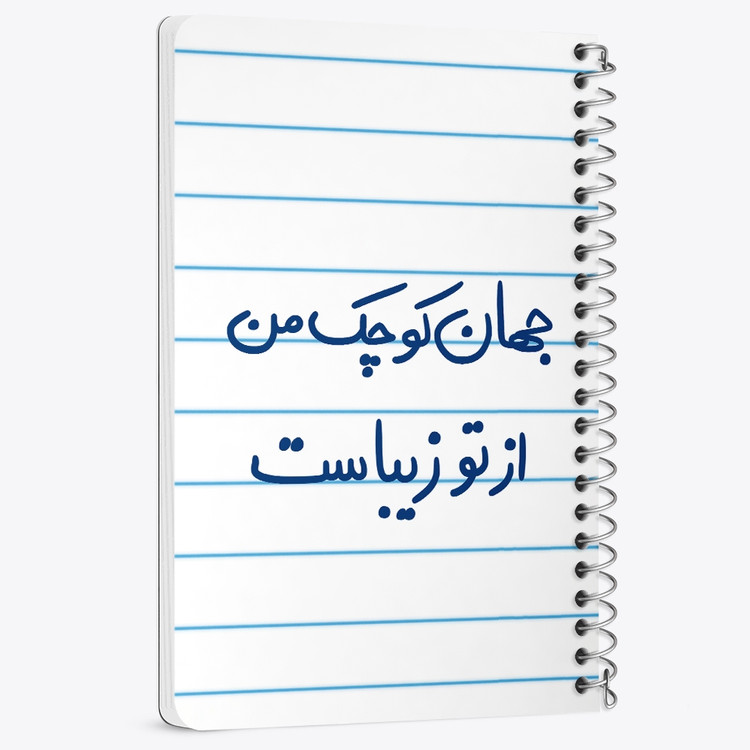 جهان کوچک من
از تو زیباست